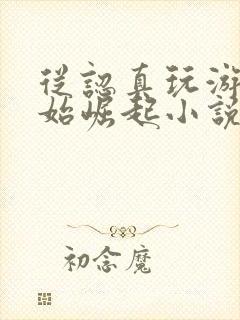 從認真玩游
始崛起小說
初念魔